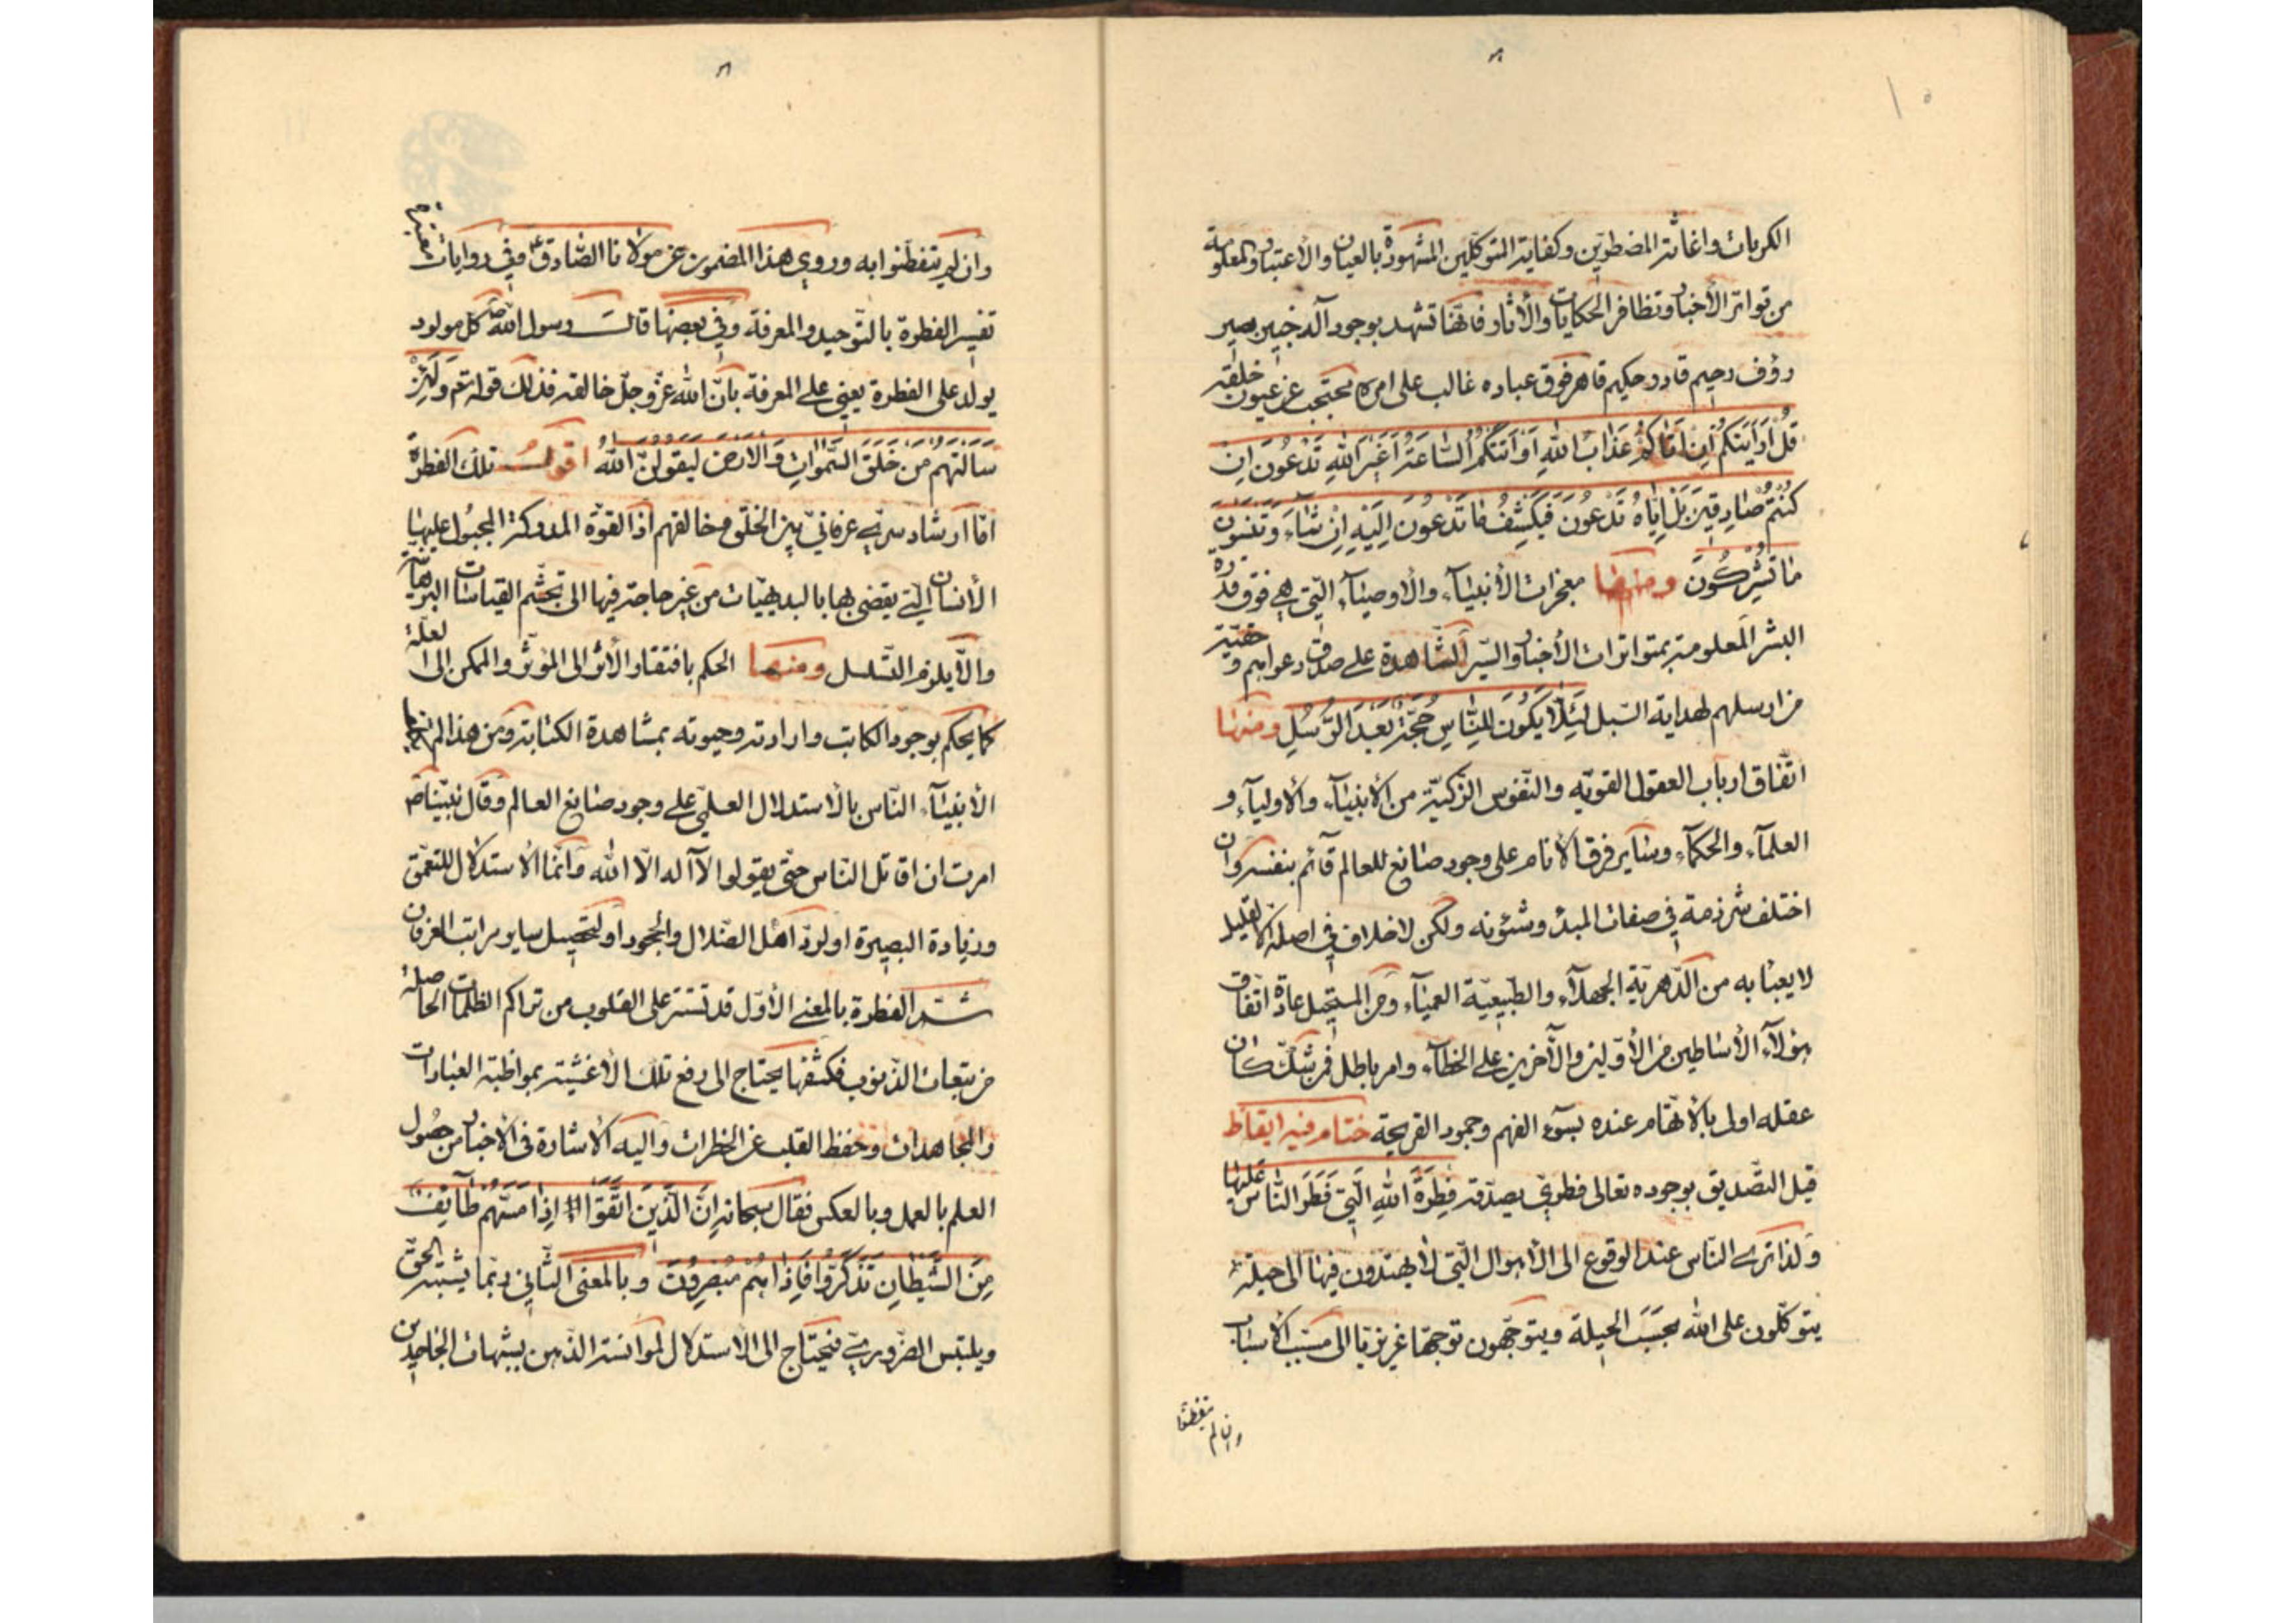 الكربات واغاثة المضطرين وكفاية المتوكلين المشهودة بالعيان والاعتبار والمعلومة
من تواتر الأخبار وتظافر الحكايات والأثار فانها تشهد بوجود آله خبير بصير
رؤف رحيم قادر حكيم قاهر فوق عباده غالب على امره محتجب عن عيون خلقه
قُلْ اَرَاَيْتَكُمْ اِنْ اَتَاكُمْ عَذَابُ اللهِ اَوْ اَتَتْكُمُ السَّاعَةُ اَغَيْرَ اللهِ تَدْعُونَ اِنْ
كُنْتُمْ صَادِقِينَ بَلْ اِيَّاهُ تَدْعُونَ فَيَكْشِفُ مَا تَدْعُونَ اِلَيْهِ اِنْ شَآءَ وَتَنْسَوْنَ
مَا تُشْرِكُونَ ومنها معجزات الأنبيآء والأوصيآء الّتي هي فوق قدرة
البشر المعلومة بمتواترات الأخبار والسير الشاهدة على صدق دعواهم و حقية
من ارسلهم لهداية السبل لِئَلَّا يَكُونَ لِلنَّاسِ حُجَّةٌ بَعْدَ الرُّسُلِ ومنها
اتّفاق ارباب العقول القويّه والنّفوس الزّكيّة من الأنبيآء والأوليآء و
العلمآء والحكمآء وسآير فرق الأنام على وجود صانع للعالم قآئم بنفسه وان
اختلف شرذمة في صفات المبدء وشئونه ولكن لاخلاف في اصله الا لقليل
لا يعبأ به من الدّهريّة الجهلآء والطّبيعيّة العميآء ومن المستحيل عادة اتّفاق
هؤلآء الأساطين من الأوّلين والآخرين على الخطآء وامر باطل فمن شكّ كان
عقله اولى بالأتّهام عنده بسوء الفهم وجمود القريحة ختام فيه ايقاظ
قيل التّصديق بوجوده تعالى فطري بصدّقه فِطْرَةَ اللهِ الَّتِي فَطَرَ النَّاسَ عَلَيْهَا
ولذا ترى النّاس عند الوقوع الى الأهوال الّتي لا يهتدون فيها الى حيلة
يتوكّلون على الله بحسب الجبلة ويتوجّهون توجّها غريزيّا الى مسبّب الأسباب
وان لم يتفطّنوا
وان لم يتفطّنوا به وروي هذا المضمون عن مولانا الصّادق ع وفي روايات
تفسير الفطرة بالتّوحيد والمعرفة وفي بعضها قال رسول الله ص كل مولود
يولد على الفطرة يعني على المعرفة بأنّ الله عزّ وجلّ خالقه فذلك قوله تع وَلَئِنْ
سَاَلْتَهُمْ مَنْ خَلَقَ السَّمٰوَاتِ وَالْاَرْضَ لَيَقُولُنَّ اللهُ اقول تلك الفطرة
امّا ارشاد سرّي عرفانيّ بين الخلق وخالقهم اذ القوّة المدركة المجبول عليها
الأنسان الّتي يقضى بها بالبديهيّات من غير حاجة فيها الى تجشّم القياسات البرهانية
والّا يلزم التّسلسل ومنها الحكم بافتقار الأثر الى المؤثّر والممكن الى العلة
كما يحكم بوجود الكاتب وارادته وحيوته بمشاهدة الكتابة ومن هذا لم
الأنبيآء النّاس بالأستدلال العلميّ على وجود صانع العالم وقال نبيّنا ص
امرت ان اقاتل النّاس حتّى يقولوا لآ اله الّا الله وانّما الأستدلال للتعمّق
وزيادة البصيرة او لردّ اهل الضّلال والجحود او لتحصيل ساير مراتب العرفان
الفطرة بالمعنى الأوّل قد تستتر على القلوب من تراكم الظلمات الحاصلة
من تبعات الذّنوب فكشفها يحتاج الى رفع تلك الأغشية بمواظبة العبادات
والمجاهدات وحفظ القلب عن الخطرات واليه الأشارة في الأخبار من حصول
العلم بالعمل وبالعكس فقال سبحانه اِنَّ الَّذِينَ اتَّقَوْا اِذَا مَسَّهُمْ طَآئِفٌ
مِنَ الشَّيْطَانِ تَذَكَّرُوا فَاِذَا هُمْ مُبْصِرُونَ وبالمعنى الثّاني ربّما يشتبه الحق
ويلتبس الضّروري فيحتاج الى الاستدلال لموانسة الذّهن بشبهات الجاحدين